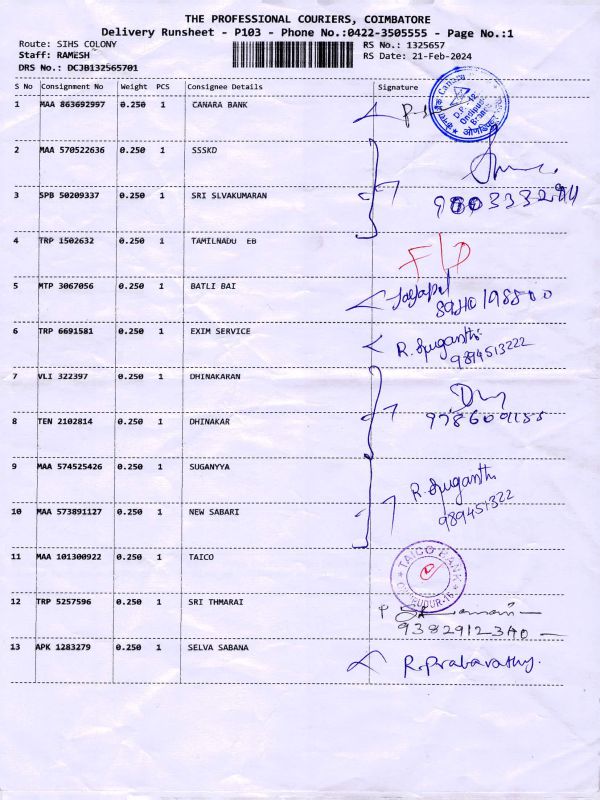 THE PROFESSIONAL COURIERS, COIMBATORE
Delivery Runsheet - P103 - Phone No.:0422-3505555 - Page No.:1
Route: SIHS COLONY
RS No.: 1325657
Staff: RAMESH
RS Date: 21-Feb-2024
DRS No.: DCJB132565701
S No Consignment No Weight PCS Consignee Details Signature
1 MAA 863692997 0.250 1 CANARA BANK
Canara
D.P.
Ondipudur
Branch
2 MAA 570522636 0.250 1 SSSKD
3 SPB 50209337 0.250 1 SRI SLVAKUMARAN
4 TRP 1502632 0.250 1 TAMILNADU EB
F/D
5 MTP 3067056 0.250 1 BATLI BAI
6 TRP 6691581 0.250 1 EXIM SERVICE
R. Suganthi
9894513222
7 VLI 322397 0.250 1 DHINAKARAN
8 TEN 2102814 0.250 1 DHINAKAR
9 MAA 574525426 0.250 1 SUGANYYA
R. Suganthi
989451322
10 MAA 573891127 0.250 1 NEW SABARI
11 MAA 101300922 0.250 1 TAICO
TAICO BANK
12 TRP 5257596 0.250 1 SRI THMARAI
13 APK 1283279 0.250 1 SELVA SABANA
R.Prabavathy.